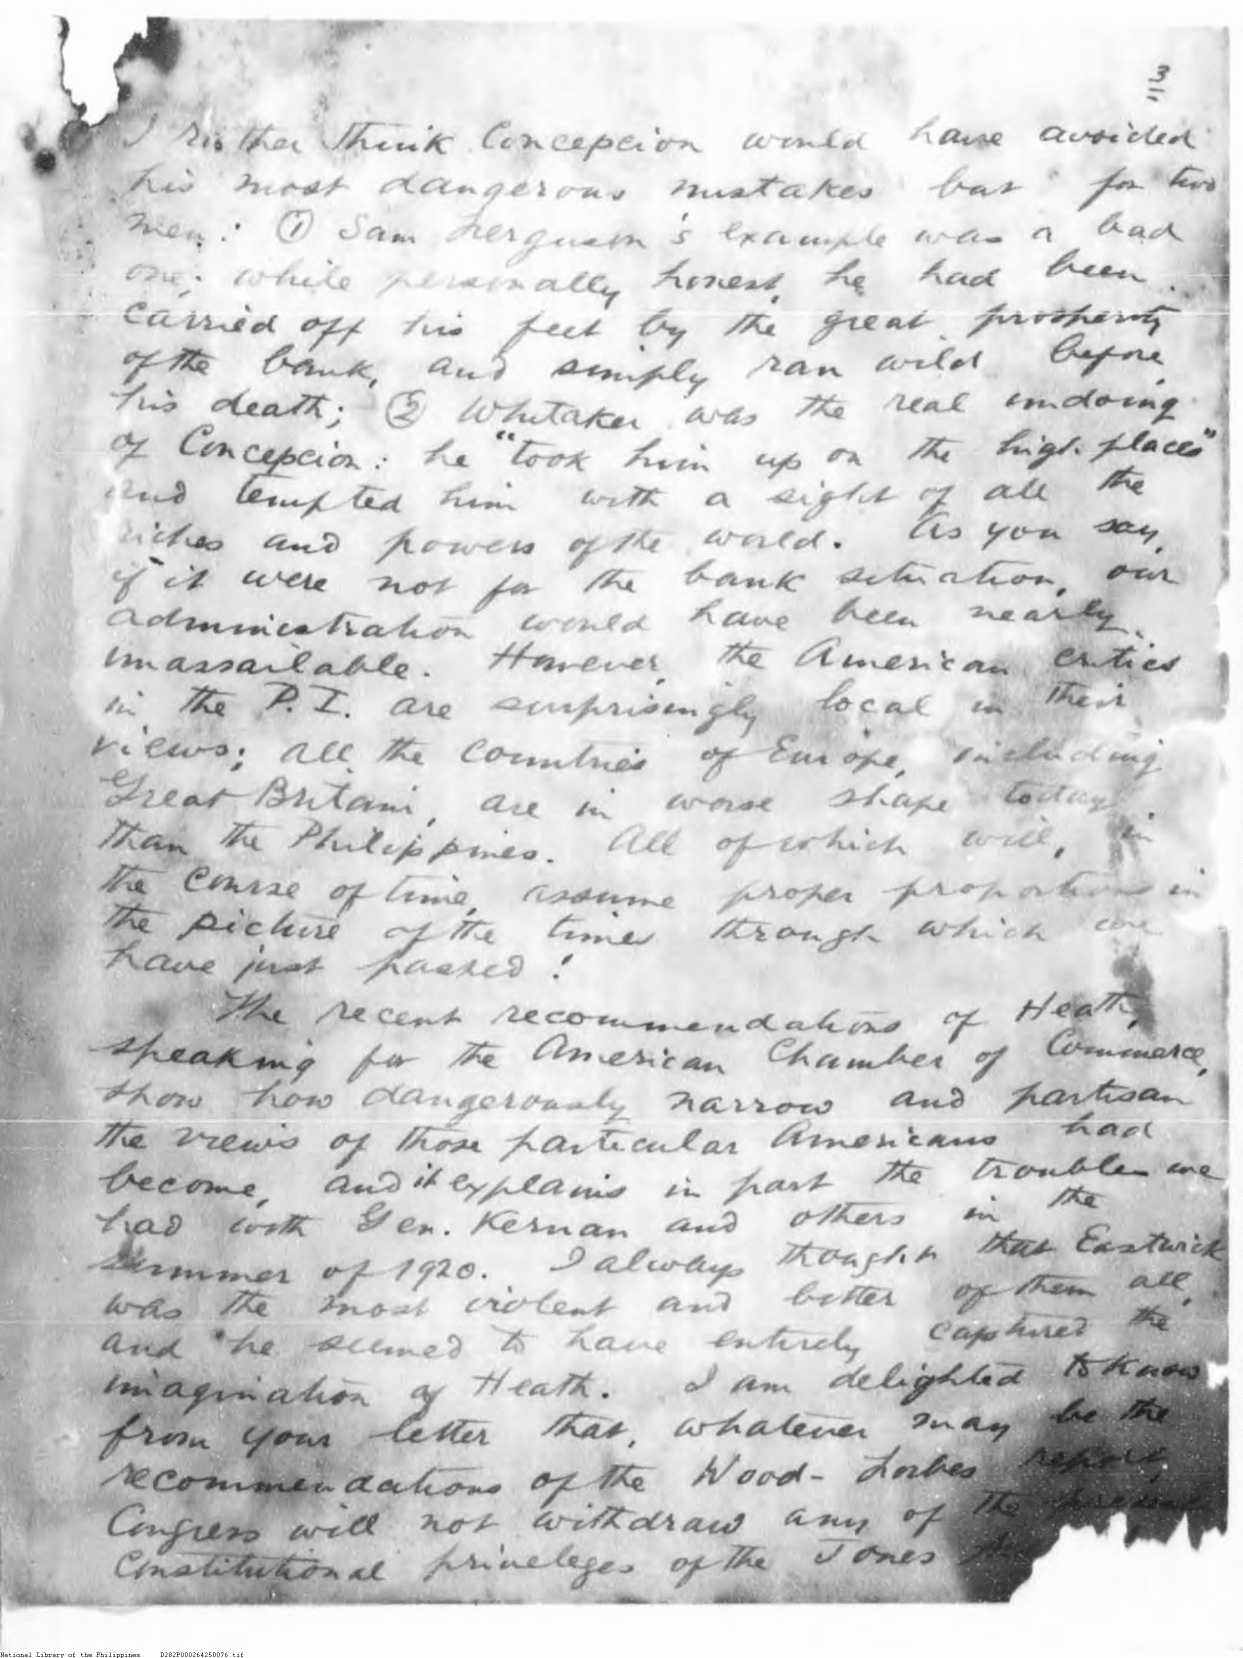 3
I rather think Concepcion would have avoided
his most dangerous mistakes but for two
men: ① Sam Ferguson's example was a bad
one; while personally honest, he had been
carried off his feet by the great prosperity
of the bank, and simply ran wild before
his death; ② Whitaker was the real undoing
of Concepcion: he "took him up on the high places"
and tempted him with a sight of all the
riches and powers of the world. As you say,
if it were not for the bank situation, our
administration would have been nearly
unassailable. However, the American critics
in the P.I. are surprisingly local in their
views; all the countries of Europe, including
Great Britain, are in worse shape today
than the Philippines. All of which will, in
the course of time, assume proper proportions in
the picture of the times through which we
have just passed!
The recent recommendations of Heath,
speaking for the American Chamber of Commerce,
show how dangerously narrow and partisan
the views of those particular Americans had
become, and it explains in part the troubles we
had with Gen. Kernan and others in the
summer of 1920. I always thought that Eastwick
was the most violent and bitter of them all,
and he seemed to have entirely captured the
imagination of Heath. I am delighted to know
from your letter that, whatever may be the
recommendations of the Wood-Forbes report,
Congress will not withdraw any of the present
Constitutional priveleges of the Jones
National Library of the Philippines D282P000264250076.tif